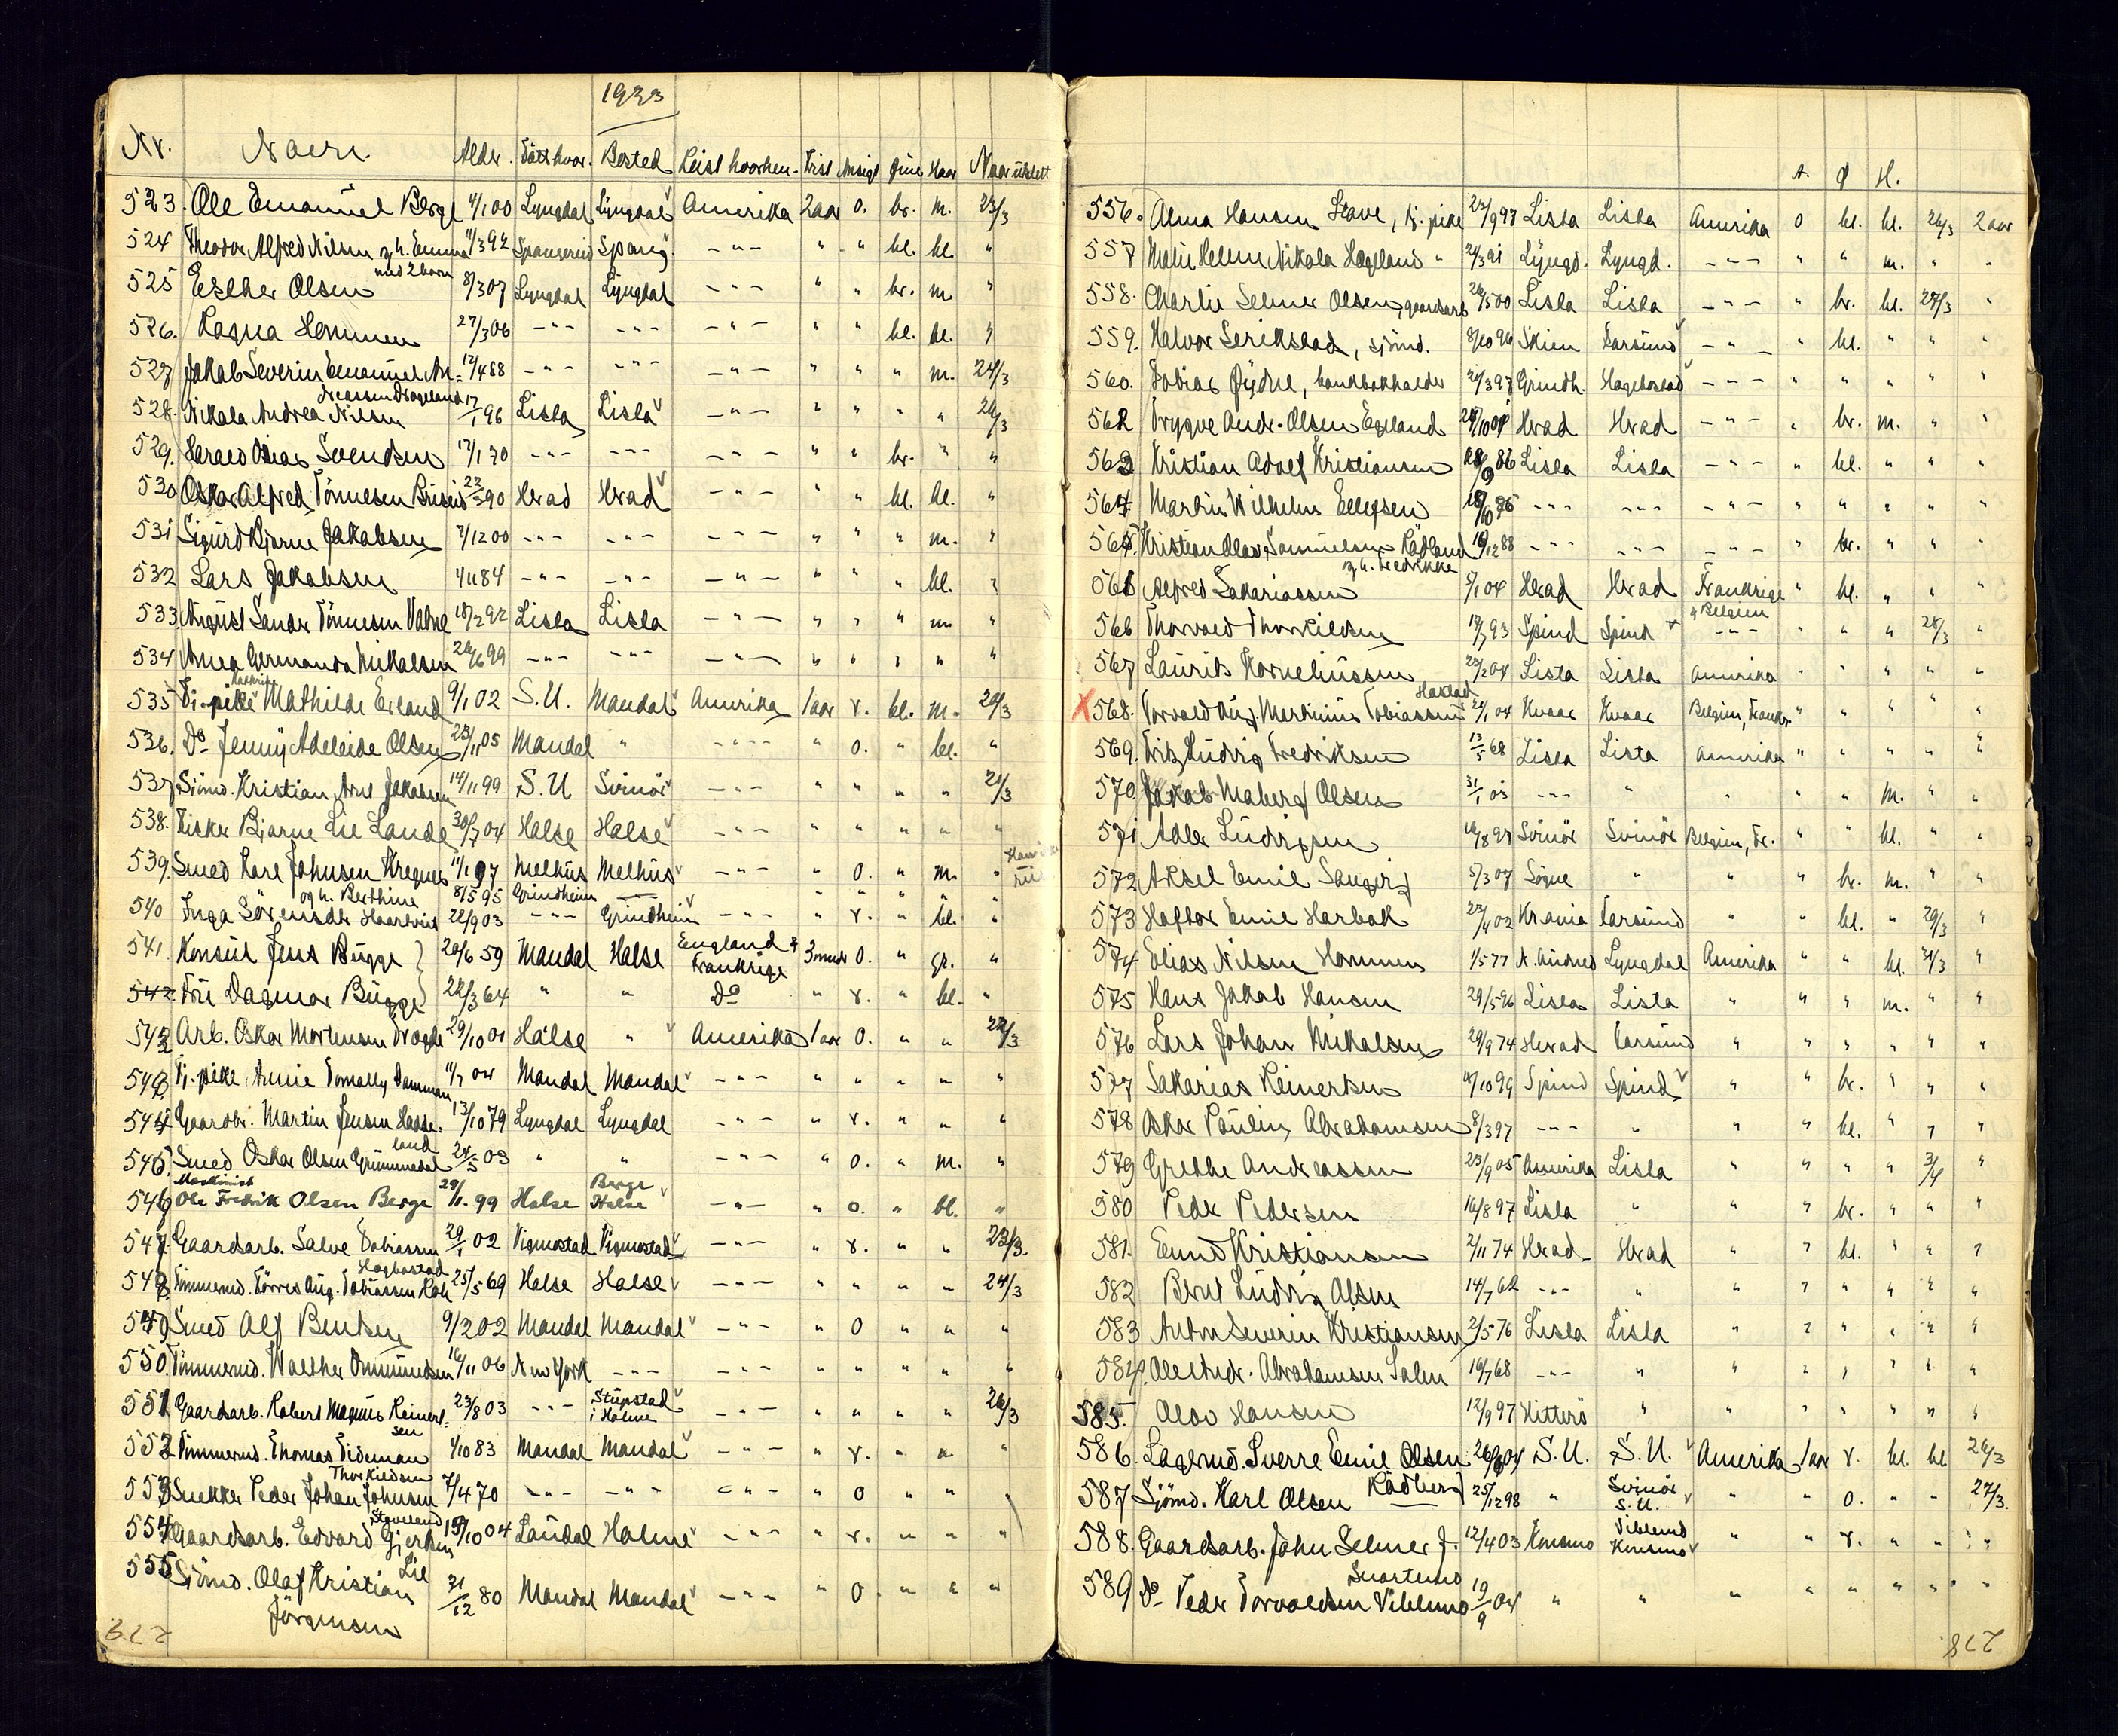 1923
Nr. Navn. Alder. Født hvor. Bosted Reist hvorhen. Frist Ansigt Øine Haar Naar utstedt
523. Ole Emanuel Berge 4/1 00 Lyngdal Lyngdal Amerika 2 aar o. br. m. 23/3
524 Theodor Alfred Nilsen og h. Emma 11/3 92 Spangereid Spang. -"- " " bl. bl. "
med 2 barn
525 Esther Olsen 8/3 07 Lyngdal Lyngdal -"- " " br. m. "
526. Ragna Hommen 27/3 06 -"- -"- -"- " " bl. bl. "
527 Jakob Severin Emanuel An- 12/4 88 -"- -"- -"- " " " m. 24/3
dreassen Drageland
528. Nikala Andrea Nilsen 17/1 96 Lista Lista -"- " " " " 26/3
529. Svendsen 17/1 70 -"- -"- -"- " " br. " "
530 Oskar Alfred Tönnesen 22/3 90 Herad Herad -"- " " bl. bl. "
531 Sigurd Bjarne Jakobsen 7/12 00 -"- -"- -"- " " " m. "
532 Lars Jakobsen 1/11 84 -"- -"- -"- " " " bl. "
533. August Sander Tönnesen Vatne 18/2 92 Lista Lista -"- " " " m "
534 Anea Germanda Mikalsen 26/6 99 -"- -"- -"- " " " " "
Kathrine
535 Tj.-pike Mathilde Erland 9/1 02 S.U. Mandal Amerika 1 aar r. bl. m. 20/3
536. Do Jenny Adeleide Olsen 23/11 05 Mandal " -"- " o. " bl. "
537 Sjömd. Kristian Arnt Jakobsen 14/11 99 S.U Svinör -"- " " " " 21/3
538. Fisker Bjarne Lie Lande 30/7 04 Halse Halse -"- " " " " "
539. Smed Karl Johnsen 11/1 97 Melhus Melhus -"- " o. " m. "
og h. Berthine 8/5 95 Grindheim
540 Inga Sörensdtr Haartveit 22/9 03 -"- Grindheim -"- " r. " bl. "
541. Konsul Jens Bugge 20/6 59 Mandal Halse England & Frankrige 3 mndr o. " gr. "
542. Fru Dagmar Bugge 22/3 64 " " Do " r. " bl. "
542 Arb. Oskar Mortensen 29/10 01 Halse " Amerika 1 aar o. " " 22/3
543 Tj.-pike Annie Tomally Damman 11/7 04 Mandal Mandal -"- " " " " "
544 Gaardbr. Martin Jensen Hadde- 13/10 79 Lyngdal Lyngdal -"- " r. " " "
land
545 Smed Oskar Olsen Grummedal 24/5 03 " " -"- " o. " m. "
Maskinist Berge
546 Ole Fredrik Olsen Berge 29/11 99 Halse Halse -"- " o. " bl. "
547. Gaardsarb. Salve Tobiassen 29/1 02 Vigmostad Vigmostad -"- " r. " " 23/3.
Hogbostad
548 Tømmermd. Törres Aug. Tobiassen 25/5 69 Halse Halse -"- " " " " 24/3
549 Smed Alf Bentsen 9/2 02 Mandal Mandal -"- " o " " "
550. Tömmermd. Walther Ommundsen 16/11 06 New York -"- -"- " " " " "
551 Gaardsarb. Robert Magnus Reinert- 23/8 03 -"- Stupstad i Holme -"- " " " " 26/3
sen
552 Tömmermd. Thomas Tideman 1/10 83 Mandal Mandal -"- " r. " " "
Thorkildsen
553 Snekker Peder Johan Johnsen 7/4 70 -"- -"- -"- " o " "
Staveland
554 Gaardsarb. Edvard Gjertsen 19/10 04 Laudal Holme -"- " r. " " "
Lie
555 Sjömd. Olaf Kristian 31/12 80 Mandal Mandal -"- " o. " " "
Jörgensen
279
A. Ø H.
556. Alma Hansen Stave, tj. pike 23/9 97 Lista Lista Amerika o bl. bl. 26/3 2 aar
557 Malie Helene Nikala Hageland " 24/3 91 Lyngd. Lyngd. -"- " " m. " "
558. Charlie Selmer Olsen, gaardsarb 26/5 00 Lista Lista -"- " br. bl. 27/3 "
559. Halvor Serikstad, sjömd. 8/10 96 Skien Farsund -"- " bl. " " "
560. Tobias Fydne, handbokholder 20/3 97 Grindh. Hægebostad -"- " " " " "
561 Trygve Andr. Olsen Egeland 28/10 01 Herad Herad -"- " br. m. " "
562 Kristian Adolf Kristiansen 28/9 86 Lista Lista -"- " bl. " " "
564 Martin Wilhelm Ellefsen 18/10 76 -"- -"- -"- " " " " "
565. Kristian Olav Samuelsen Rådland 19/12 88 -"- -"- -"- " br. " " "
og h. Fredrikke
565 Alfred Sakariassen 5/1 04 Herad Herad Frankrige " bl. " " "
& Belgien
566 Thorvald Thorkildsen 19/7 93 Spind Spind -"- " " " 28/3 "
567 Laurits Korneliussen 23/2 04 Lista Lista Amerika " " " " "
X 568. Torvald Aug. Martinius Tobiassen 20/1 04 Kvaas Kvaas Belgien, Frankr " " " " "
569. Fritz Ludvig Fredriksen 13/5 68 Lista Lista Amerika " " " " "
570 Jakob Maberg Olsen 31/1 03 -"- " " " " m. " "
571 Adler Ludvigsen 16/8 97 Svinör Svinör Belgien, Fr. " " bl. " "
572 Aksel Emil 5/3 07 Sögne " " " br. m. " "
573 Haftor Emil Harbak 23/4 02 Kr.ania Farsund " " bl. " 29/3 "
574 Tobias Nilsen Hommen 1/5 77 N. Audned Lyngdal Amerika " " bl. 31/3 "
575 Hans Jakob Hansen 29/5 96 Lista Lista " " " m. " "
576 Lars Johan Mikalsen 29/9 74 Herad Farsund " " " " " "
577 Sakarias Reinertsen 10/10 99 Spind Spind " " br. " " "
578 Oskar Paulin Abrahamsen 8/3 97 -"- " " " bl. " " "
579 Grethe Andreassen 23/9 05 Amerika Lista " " " " 3/4 "
580 Peder Pedersen 16/8 97 Lista " " " br. " " "
581. Kristiansen 2/11 74 Herad Herad " " bl. " " "
582 Bernt Ludvig Olsen 14/7 62 -"- " " " " " " "
583 Anton Severin Kristiansen 2/5 76 Lista Lista " " " " " "
584. Ole Andr. Abrahamsen 16/7 68 -"- " " " " " " "
585. Olav Hansen 12/9 97 Hitterö " " " " " " "
586. Lagermd. Sverre Emil Olsen 26/6 04 S.U. S.U. Amerika 1 aar r. bl. bl. 26/3
Rådberg Svinör
587 Sjömd. Karl Olsen 25/12 98 " S.U. " " o. " " 27/3.
Viblemo
588. Gaardsarb. John Selmer J. 12/4 03 Konsmo Konsmo " " r. " " "
Svartemo
589 Do Peder Torvaldsen Viblemo 19/9 04 " " " " " " " "
278